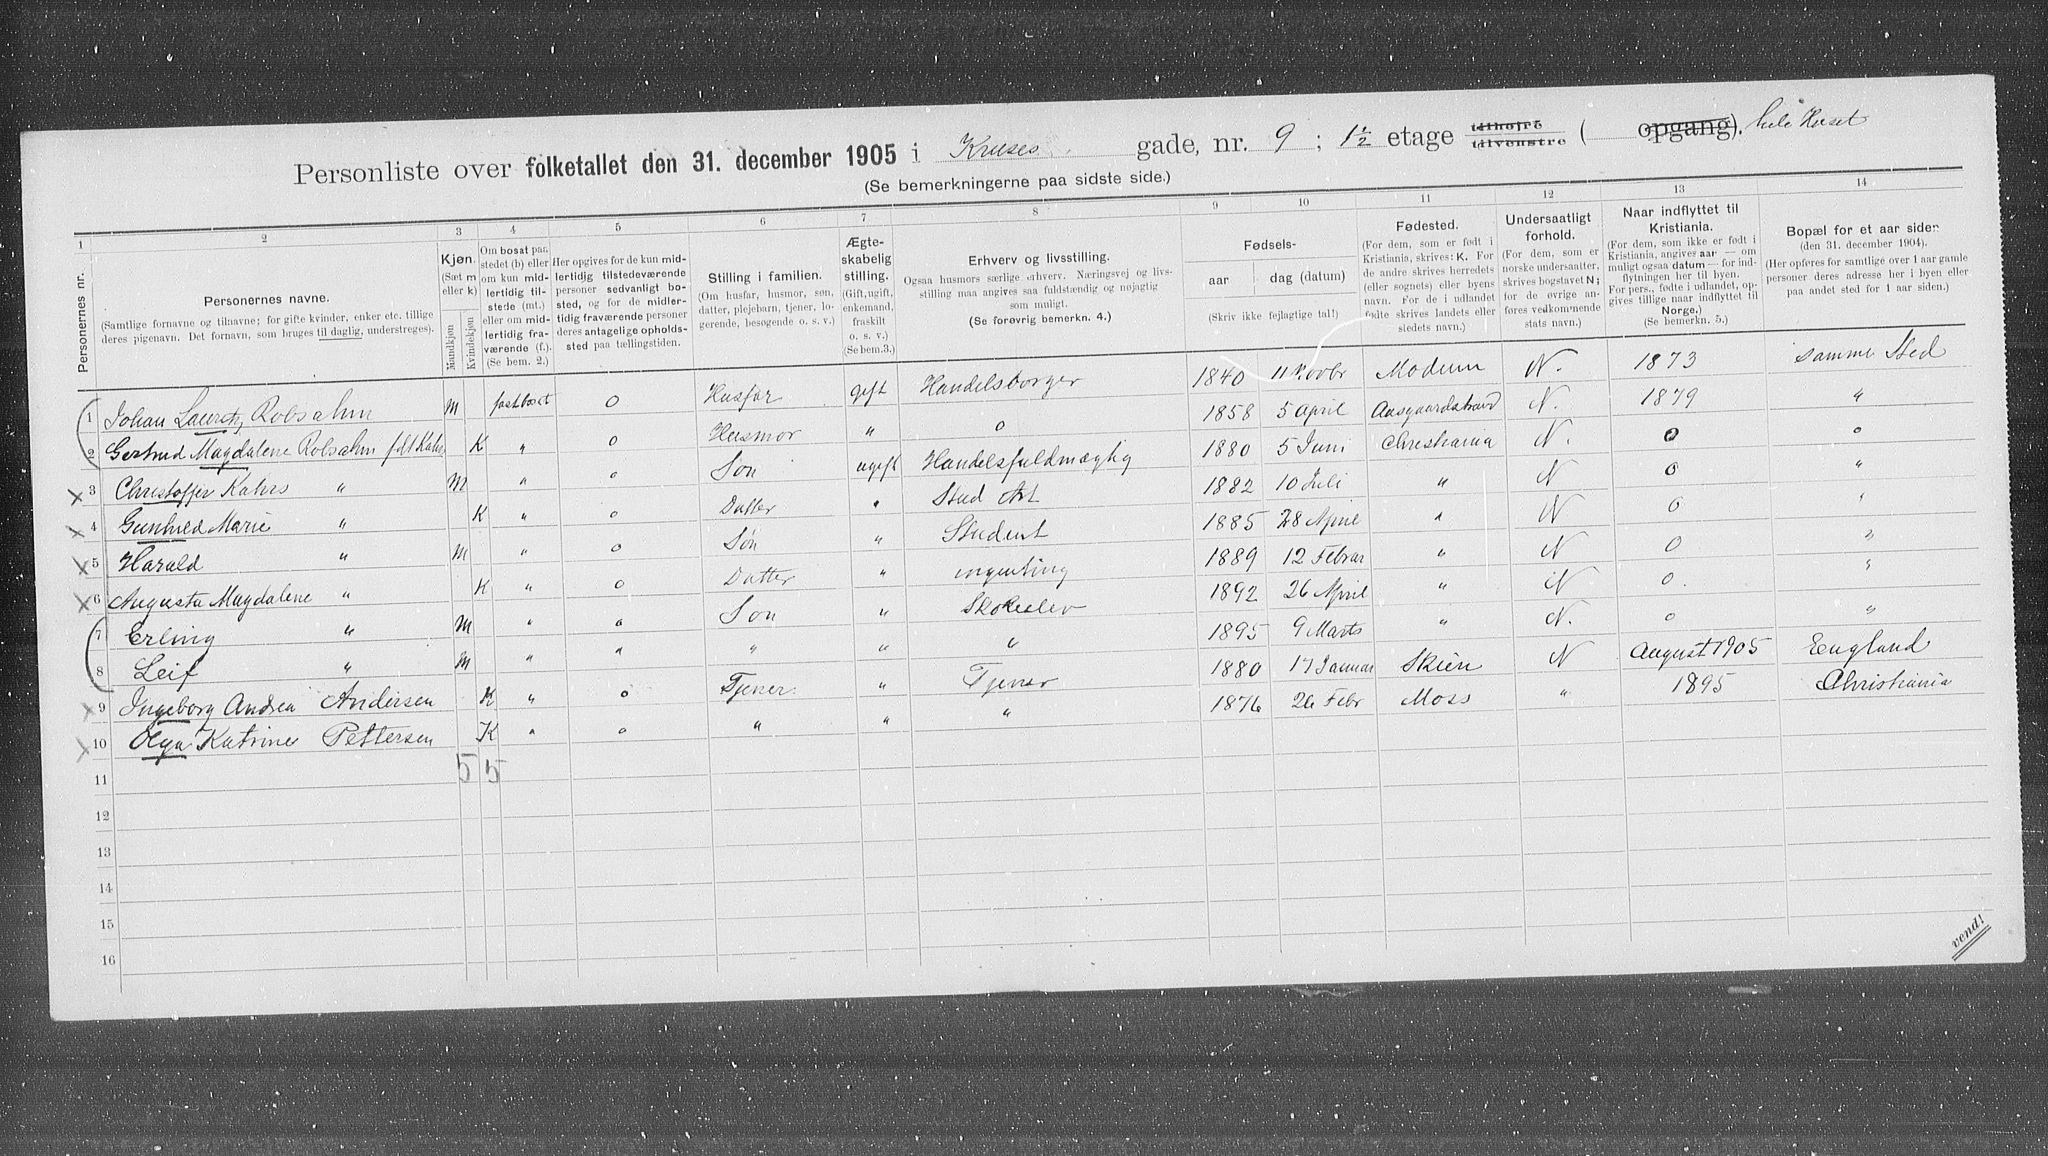 Personliste over folketallet den 31. december 1905 i Kruses gade, nr. 9 ; 1½ etage tilhøjre tilvenstre ( opgang). hele Huset
(Se bemerkningerne paa sidste side.)
1 2 3 4 5 6 7 8 9 10 11 12 13 14
Personernes nr.
Personernes navne.
(Samtlige fornavne og tilnavne; for gifte kvinder, enker etc. tillige
deres pigenavn. Det fornavn, som bruges til daglig, understreges).
Kjøn.
(Sæt m
eller k)
Mandkjøn
Kvindekjøn
Om bosat paa
stedet (b) eller
om kun mid-
lertidig til-
stede (mt.)
eller om mid-
lertidig fra-
værende (f.).
(Se bem. 2.)
Her opgives for de kun mid-
lertidig tilstedeværende
personer sedvanlig bo-
sted, og for de midler-
tidig fraværende personer
deres antagelige opholds-
sted paa tællingstiden.
Stilling i familien.
(Om husfar, husmor, søn,
datter, plejebarn, tjener, lo-
gerende, besøgende o. s. v.)
Ægte-
skabelig
stilling.
(Gift, ugift,
enkemand,
fraskilt
o. s. v.)
(Se bem. 3.)
Erhverv og livsstilling.
Ogsaa husmors særlige erhverv. Næringsvej og livs-
stilling maa angives saa fuldstændig og nøjagtig
som muligt.
(Se forøvrig bemerkn. 4.)
Fødsels-
aar
dag (datum)
(Skriv ikke fejlagtige tal!)
Fødested.
(For dem, som er født i
Kristiania, skrives: K. For
de andre skrives herredets
(eller sognets) eller byens
navn. For de i udlandet
fødte skrives landets eller
stedets navn.)
Undersaatligt
forhold.
(For dem, som er
norske undersaatter,
skrives bogstavet N;
for de øvrige an-
føres vedkommende
stats navn.)
Naar indflyttet til
Kristiania.
(For dem, som ikke er født i
Kristiania, angives aar — om
muligt ogsaa datum — for ind-
flytningen her til byen.
For pers., fødte i udlandet, op-
gives tillige naar indflyttet til
Norge.)
(Se bemerkn. 5.)
Bopæl for et aar siden
(den 31. december 1904).
(Her opføres for samtlige over 1 aar gamle
personer deres adresse her i byen eller
paa andet sted for 1 aar siden.)
1 Johan Lauritz Robsahm m fastboet 0 Husfar gift Handelsborger 1840 11 Novbr Modum N. 1873 samme Sted
2 Gertrud Magdalene Robsahm født Kahrs K " 0 Husmor " 0 1858 5 April Aasgaardstrand N. 1879 "
3 Christoffer Kahrs " m " 0 Søn ugift Handelsfuldmægtig 1880 5 Juni Christiania N. 0 0
4 Gunhild Marie " K " 0 Datter " Stud Art 1882 10 Juli " N 0 "
5 Harald " m " 0 Søn " Student 1885 28 April " N 0 "
6 Augusta Magdalene " K " 0 Datter " ingenting 1889 12 Februar " N 0 "
7 Erling " m " 0 Søn " Skoleelev 1892 26 April " N 0. "
8 Leif " m " " " " " 1895 9 Marts " N. 0 "
9 Ingeborg Andrea Andersen K " 0 Tjener " Tjener 1880 17 Januar Skien N August 1905 England
10 Olga Katrine Pettersen K " 0 " " " 1876 26 Febr Moss " 1895 Christiania
11 5 5
12
13
14
15
16
vend!